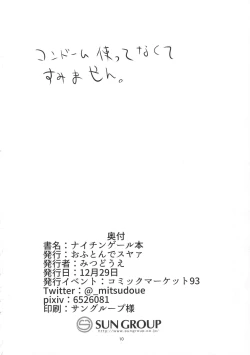 コンドーム使ってなくて
すみません。
奥付
書名：ナイチンゲール本
発行：おふとんでスヤァ
発行者：みつどうえ
発行日：12月29日
発行イベント：コミックマーケット93
Twitter：@_mitsudoue
pixiv：6526081
印刷：サングループ様
SUN GROUP